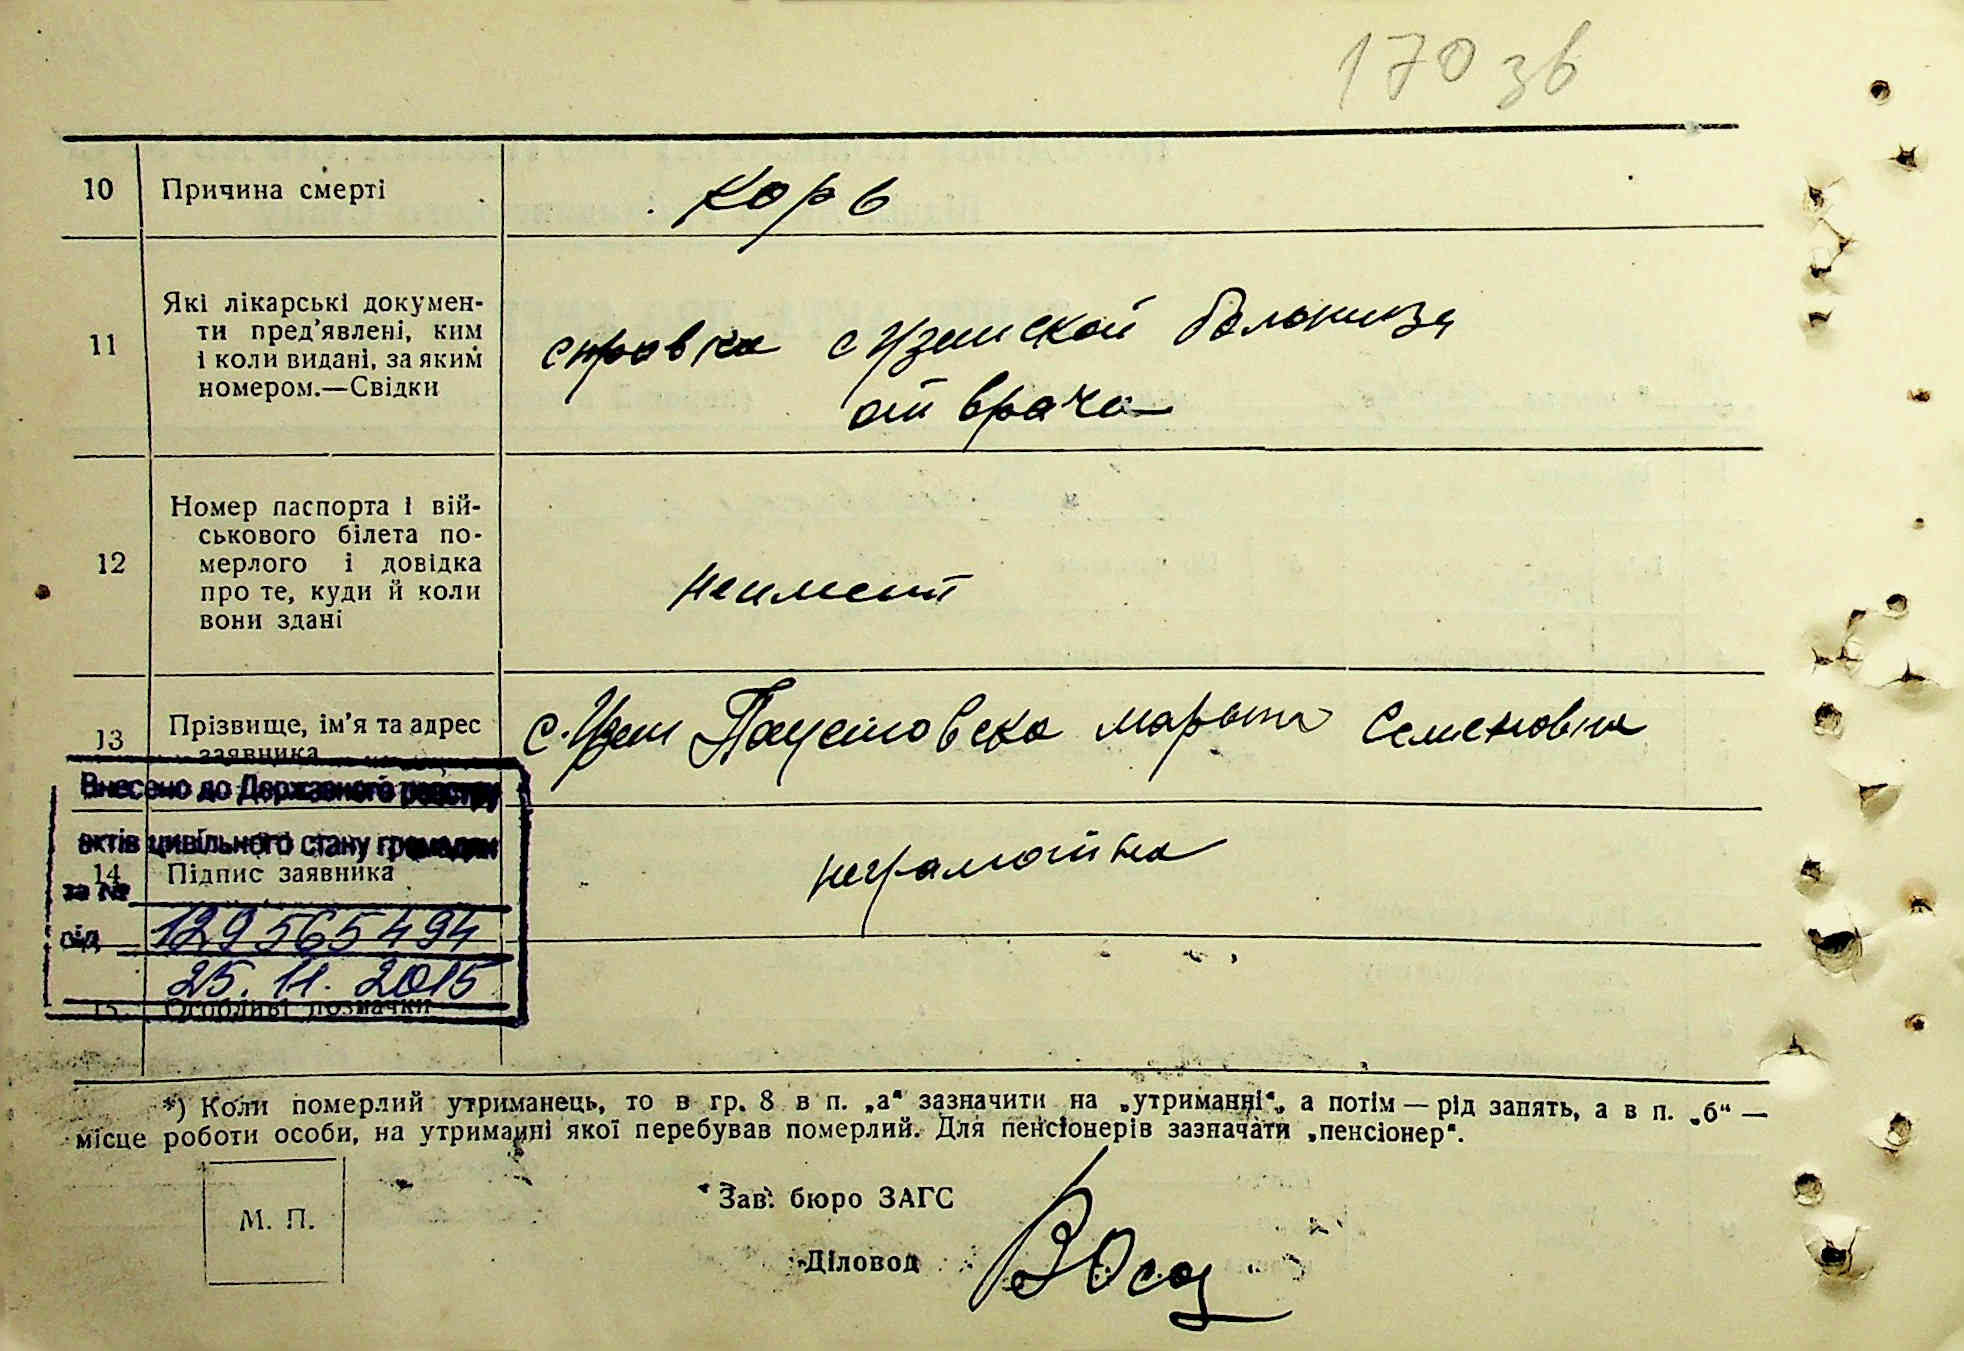 170 зв
10 Причина смерті корь
11 Які лікарські докумен-
ти пред'явлені, ким
і коли видані, за яким
номером.—Свідки
справка с
от врача
12 Номер паспорта і вій-
ськового білета по-
мерлого і довідка
про те, куди й коли
вони здані
неимеит
13 Прізвище, ім'я та адрес
заявника
с. Семеновна
Внесено до Державного реєстру
актів цивільного стану громадян
14 Підпис заявника
неграмотна
за №
129565494
від
25.11.2015
15 Особливі позначки
*) Коли померлий утриманець, то в гр. 8 в п. „а“ зазначити на „утриманні“, а потім — рід занять, а в п. „б“ —
місце роботи особи, на утриманні якої перебував померлий. Для пенсіонерів зазначати „пенсіонер“.
М. П.
Зав. бюро ЗАГС
Діловод